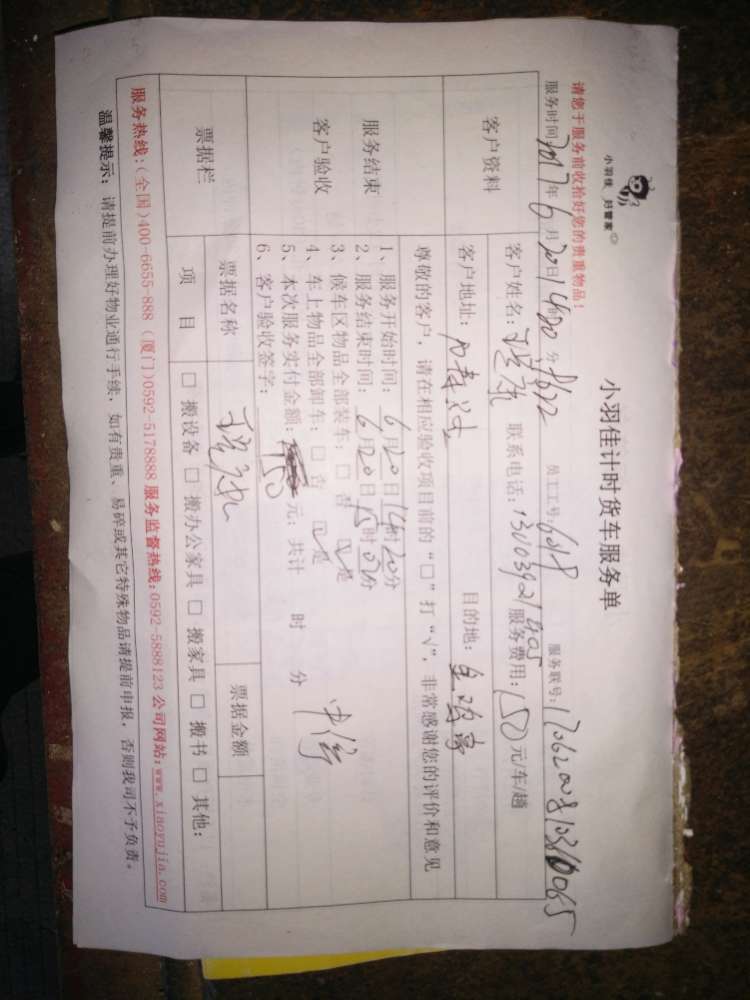 小羽佳 好管家
小羽佳计时货车服务单
请您于服务前收拾好您的贵重物品！
服务时间 2017年6月20日14时20分 员工工号：6018 服务联号：
客户资料
客户姓名： 联系电话：13003921405 服务费用：150元/车/趟
客户地址： 目的地：
尊敬的客户，请在相应验收项目前的“□”打“√”，非常感谢您的评价和意见
服务结束
客户验收
1、服务开始时间：6月20日14时20分
2、服务结束时间：6月20日15时0分
3、候车区物品全部装车：□ 否 ☑ 是
4、车上物品全部卸车：□ 否 ☑ 是
5、本次服务实付金额：150元；共计 时 分
6、客户验收签字：
票据栏
票据名称 票据金额
项 目 □ 搬设备 □ 搬办公家具 □ 搬家具 □ 搬书 □ 其他：
服务热线：(全国)400-6655-888 (厦门)0592-5178888 服务监督热线：0592-5888123 公司网站：www.xiaoyujia.com
温馨提示：请提前办理好物业通行手续，如有贵重、易碎或其它特殊物品请提前申报，否则我司不予负责。